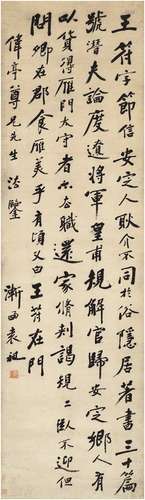 王符字節信安定人耿介不同於俗隱居著書三十篇
號潛夫論度遼將軍皇甫規解官歸安定鄉人有
以貨得雁門太守者亦去職還家脩刺謁規規臥不迎但
問卿在郡食雁美乎有頃又白王符在門
偉亭尊兄先生 法鑒
漸西袁昶